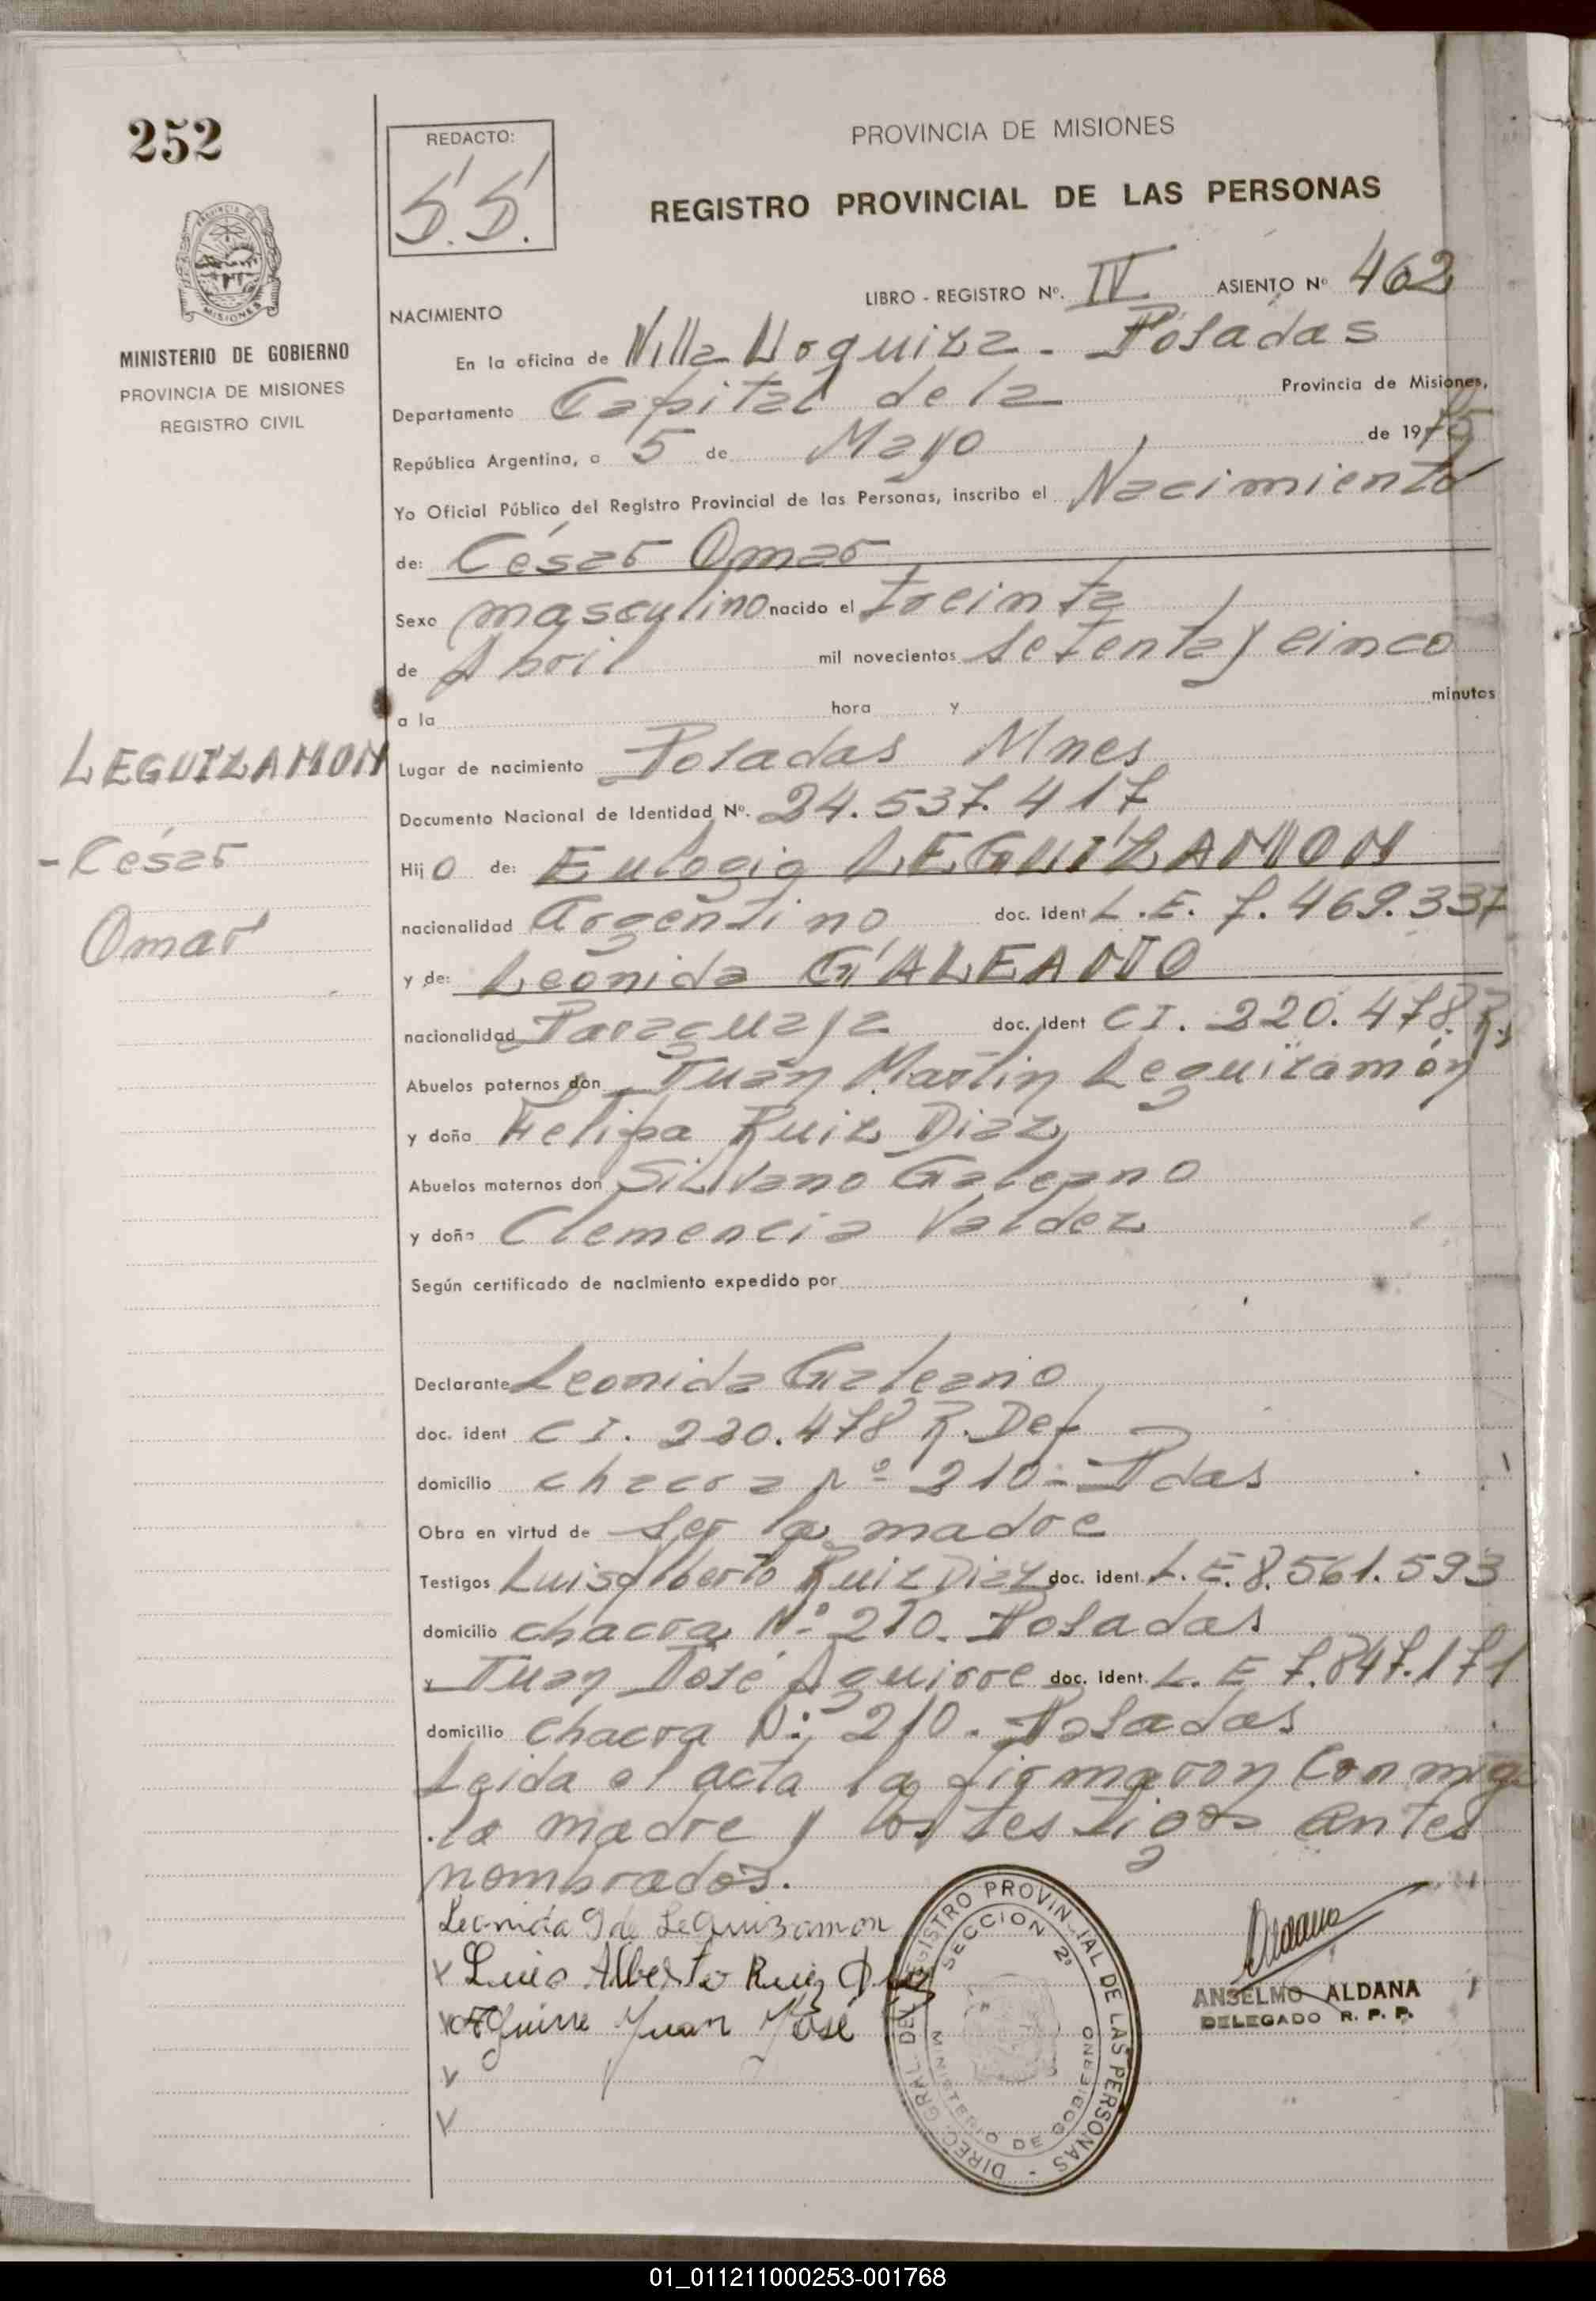 252
REDACTO:
S.S.
PROVINCIA DE MISIONES
REGISTRO PROVINCIAL DE LAS PERSONAS
LIBRO - REGISTRO Nº. IV ASIENTO Nº 462
PROVINCIA DE MISIONES
MINISTERIO DE GOBIERNO
PROVINCIA DE MISIONES
REGISTRO CIVIL
NACIMIENTO
En la oficina de Villa Urquiza - Posadas
Departamento Capital de la Provincia de Misiones,
República Argentina, a 5 de Mayo de 1975
Yo Oficial Público del Registro Provincial de las Personas, inscribo el Nacimiento
de: César Omar
Sexo masculino nacido el treinta
de Abril mil novecientos setenta y cinco
a la hora y minutos
LEGUIZAMON
Lugar de nacimiento Posadas Mnes
Documento Nacional de Identidad Nº. 24.537.417
- César
Omar
Hijo de: Eulogio LEGUIZAMON
nacionalidad Argentino doc. ident L.E. 7.469.337
y de: Leonida GALEANO
nacionalidad Paraguaya doc. ident CI. 220.478 R.
Abuelos paternos don Juan Martin Leguizamón
y doña Felipa Ruiz Diaz
Abuelos maternos don Silvano Galeano
y doña Clemencia Valdez
Según certificado de nacimiento expedido por
Declarante Leonida Galeano
doc. ident CI. 220.478 R. Def
domicilio chacra Nº 210 - Pdas
Obra en virtud de ser la madre
Testigos Luis Alberto Ruiz Diaz doc. ident. L.E. 8.561.593
domicilio chacra Nº 210. Posadas
y Juan José Aguirre doc. ident. L.E 7.847.171
domicilio chacra Nº 210. Posadas
Leida el acta la firmaron conmigo
la madre y los testigos antes
nombrados.
Leonida G de Leguizamon
Luis Alberto Ruiz Diaz
Aguirre Juan José
DIREC. GRAL. DEL REGISTRO PROVINCIAL DE LAS PERSONAS -
SECCION 2ª
MINISTERIO DE GOBIERNO
Aldana
ANSELMO ALDANA
DELEGADO R. P. P.
01_011211000253-001768